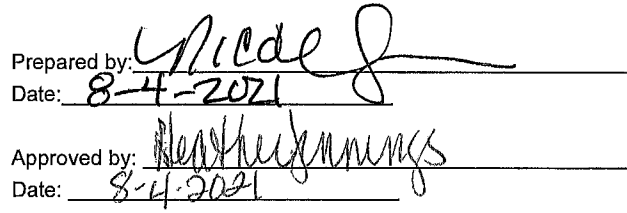 Prepared by: Nicole
Date: 8-4-2021
Approved by: Heather Jennings
Date: 8-4-2021